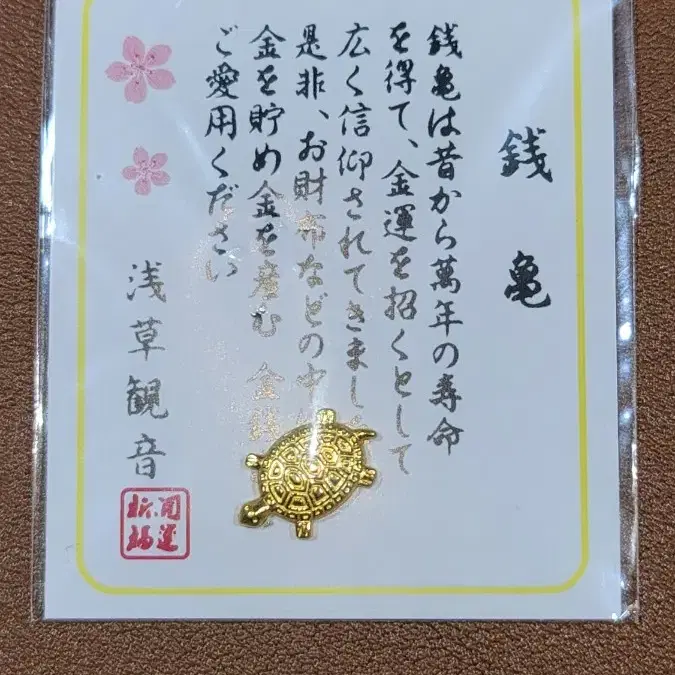 銭亀
銭亀は昔から萬年の寿命
を得て、金運を招くとして
広く信仰されてきまし
是非、お財布などの中
金を貯め金を産む 金銭
ご愛用ください
浅草観音
開運
祈福